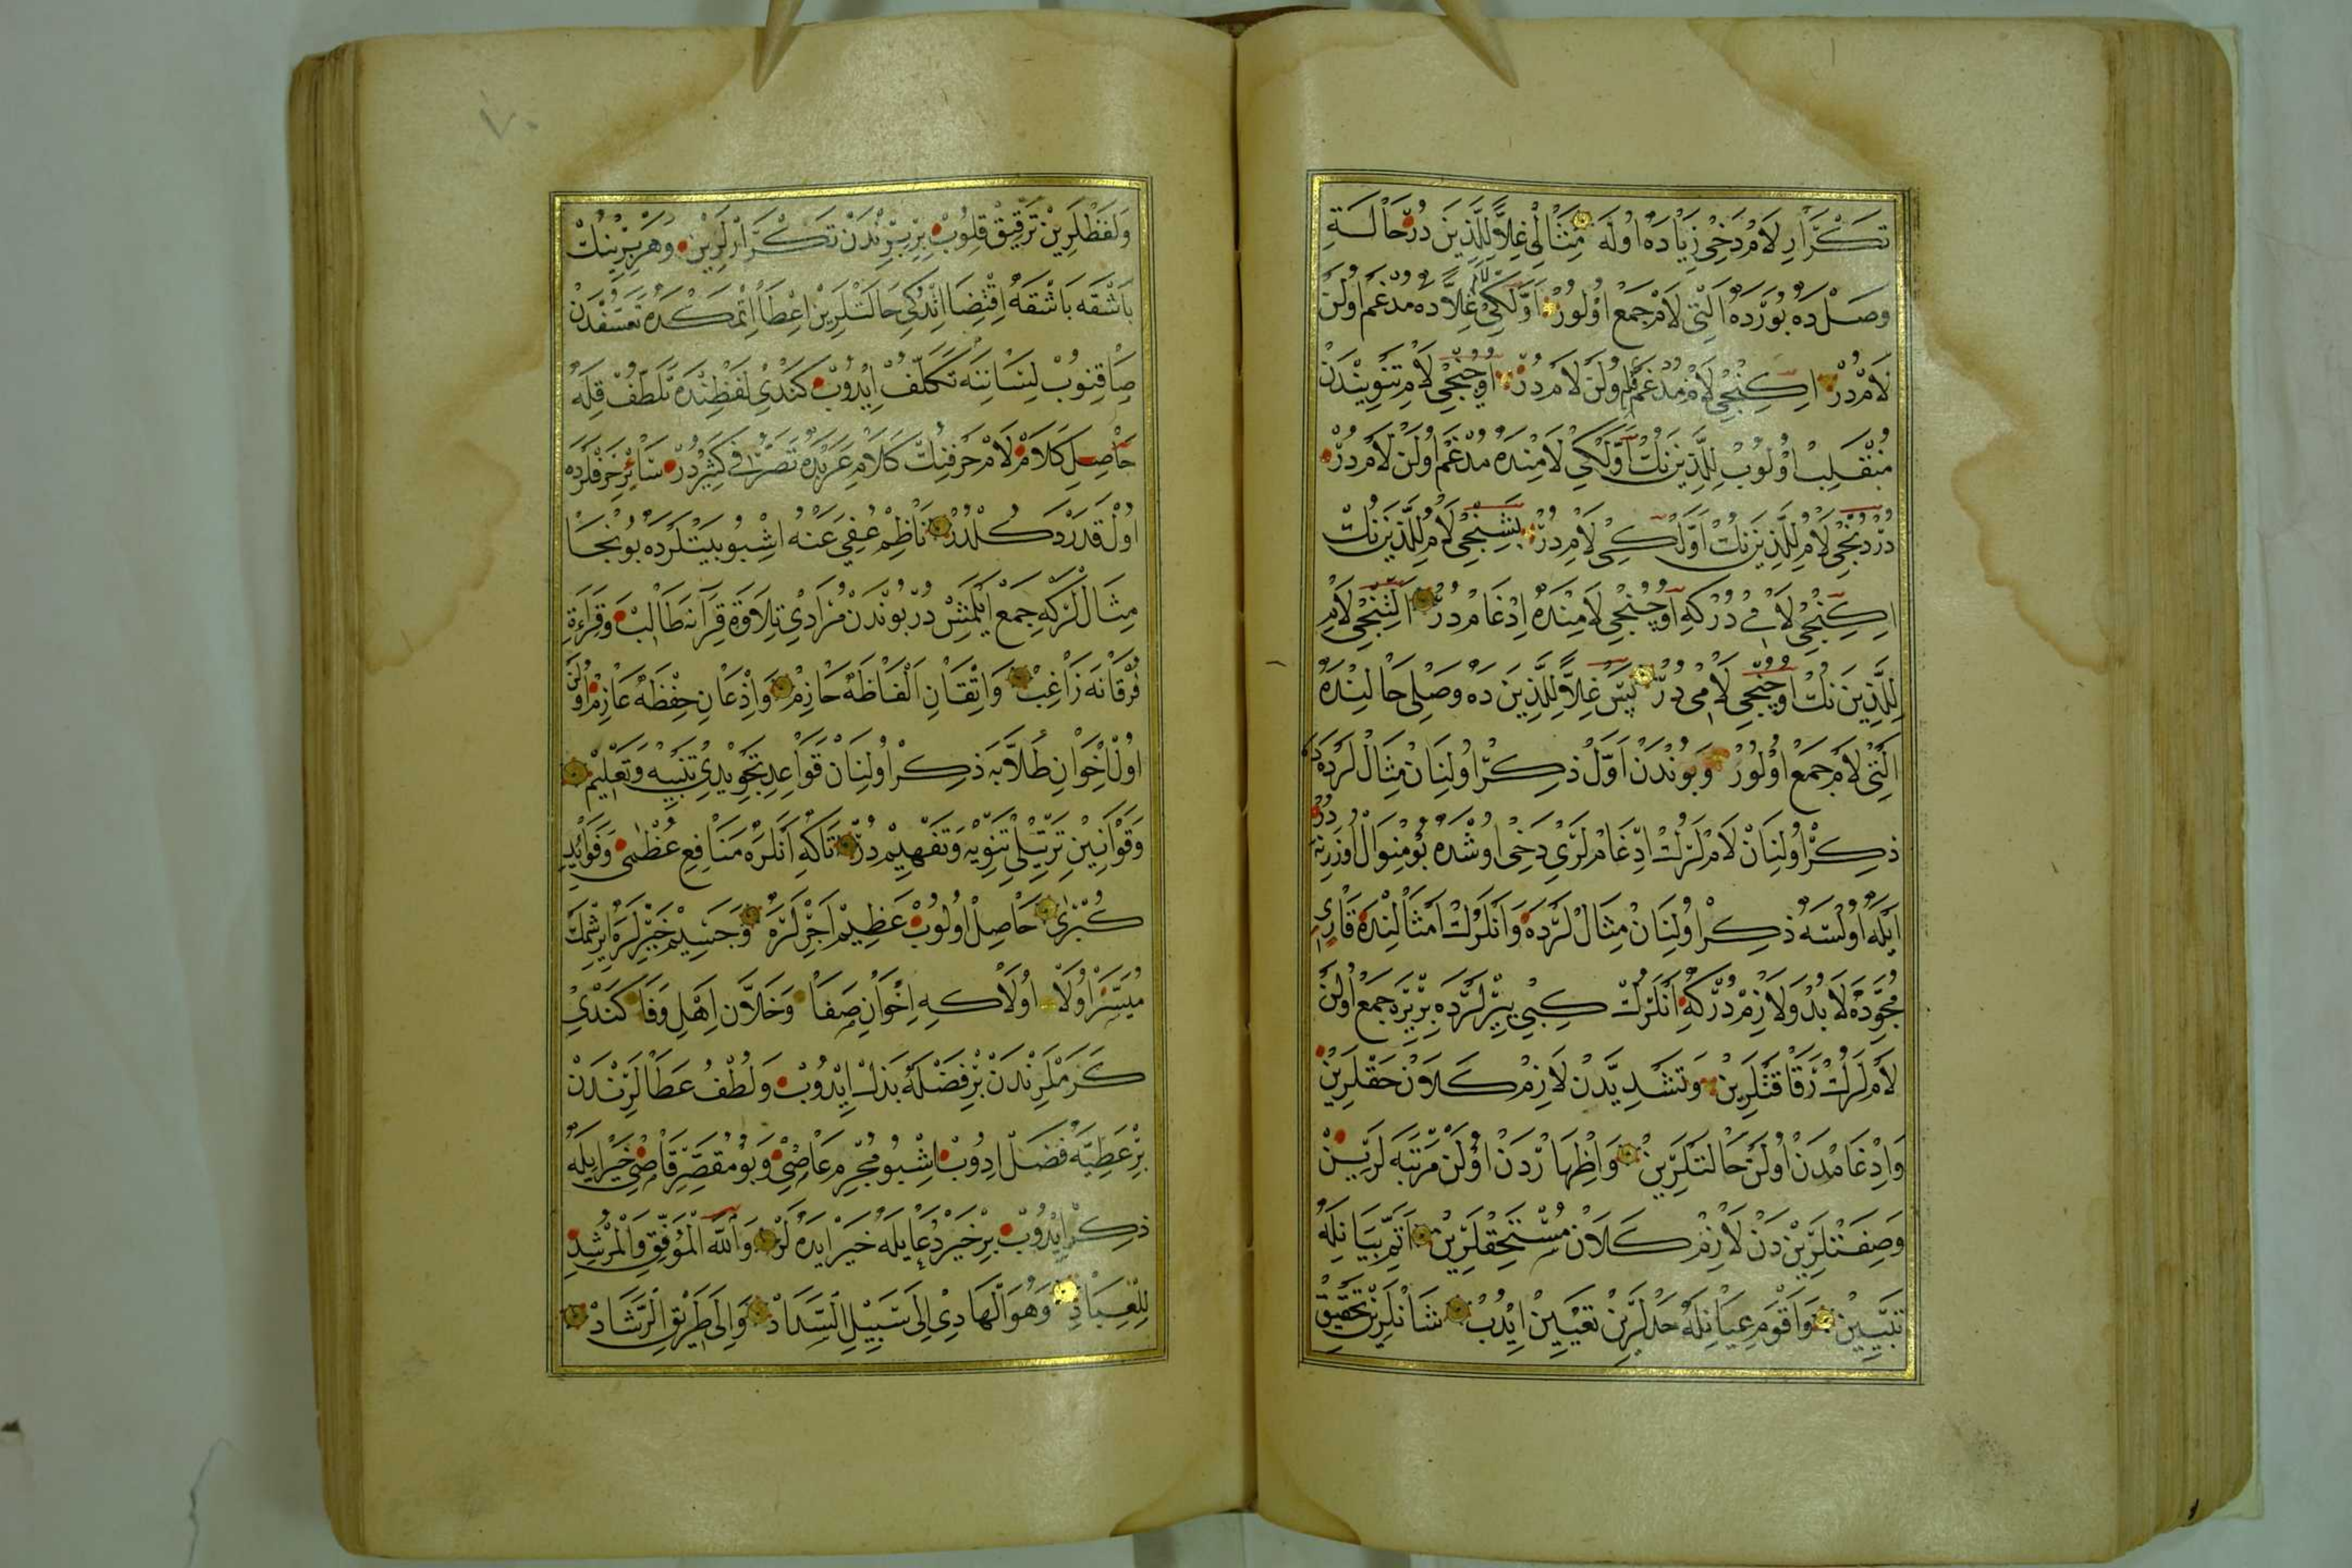 تكرار لام دخى زياده اوله مثالى غلا للذين در حالة
وصلده بورده التى لام جمع اولور اولكى غلاده مدغم اولن
لامدر ايكنجى لام مدغم فيه اولن لامدر اوچنجى لام تنويندن
منقلب اولوب للذينك اولكى لامنده مدغم اولن لامدر
دردنجى لام للذينك اولكى لامدر بشنجى لام للذينك
ايكنجى لاميدركه اوچنجى لامنده ادغامدر التنجى لام
للذينك اوچنجى لاميدر پس غلا للذينده وصلى حالنده
التى لام جمع اولور وبوندن اول ذكر اولنان مثاللرده ده
ذكر اولنان لاملرك ادغاملرى دخى اوشده بو منوال اوزرنه در
ايله اولسه ذكر اولنان مثاللرده وانلرك امثالنده قارئ
مجوده لابد ولازمدركه انلرك كبى يرلرده بربره جمع اولن
لاملرك رقاقتلرين وتشديددن لازم كلاون حقلرين
وادغامدن اولن حالتلرين واظهاردن اولن مرتبه لرين
وصفتلرندن لازم كلان مستحقلرين اتم بيانله
تبيين واقوم عيانله حدلرين تعيين ايدب شانلرين تحقيق
ولفظلرين ترقيق قلوب بربرندن تكرارلرين وهر بيرينك
باشقه باشقه اقتضا اندكى حالتلرين اعطا اتمكده تعسفدن
صاقنوب لسانينه تكلف ايدوب كندى لفظنده تلطف قله
حاصل كلام لام حرفنك كلام عربده تصرفى كثيردر سائر حرفلرده
اول قدر دكلدر ناظم عفى عنه اشبو بيتلرده بونجا
مثاللركه جمع ايلمشدر بوندن مرادى تلاوة قرآنه طالب وقراءة
فرقانه راغب واتقان الفاظه حازم واذعان حفظه عازم اولن
اول اخوان طلابه ذكر اولنان قواعد تجويدى تنبيه وتعليم
وقوانين ترتيلى تنويه وتفهيمدر تاكه انلره منافع عظمى وفوائد
كبرى حاصل اولوب عظيم اجرلره وجسيم خيرلره ايرشمك
ميسر اولا اولاكه اخوان صفا وخلان اهل وفا كندى
كرملرندن بر فضله بذل ايدوب ولطف عطالرندن
بر عطيه فضل ادوب اشبو مجرم عاصى وبو مقصر قاضى خير ايله
ذكر ايدوب بر خير دعايله خير ايده لر والله الموفق والمرشد
للعباد وهو الهادى الى سبيل السداد والى طريق الرشاد